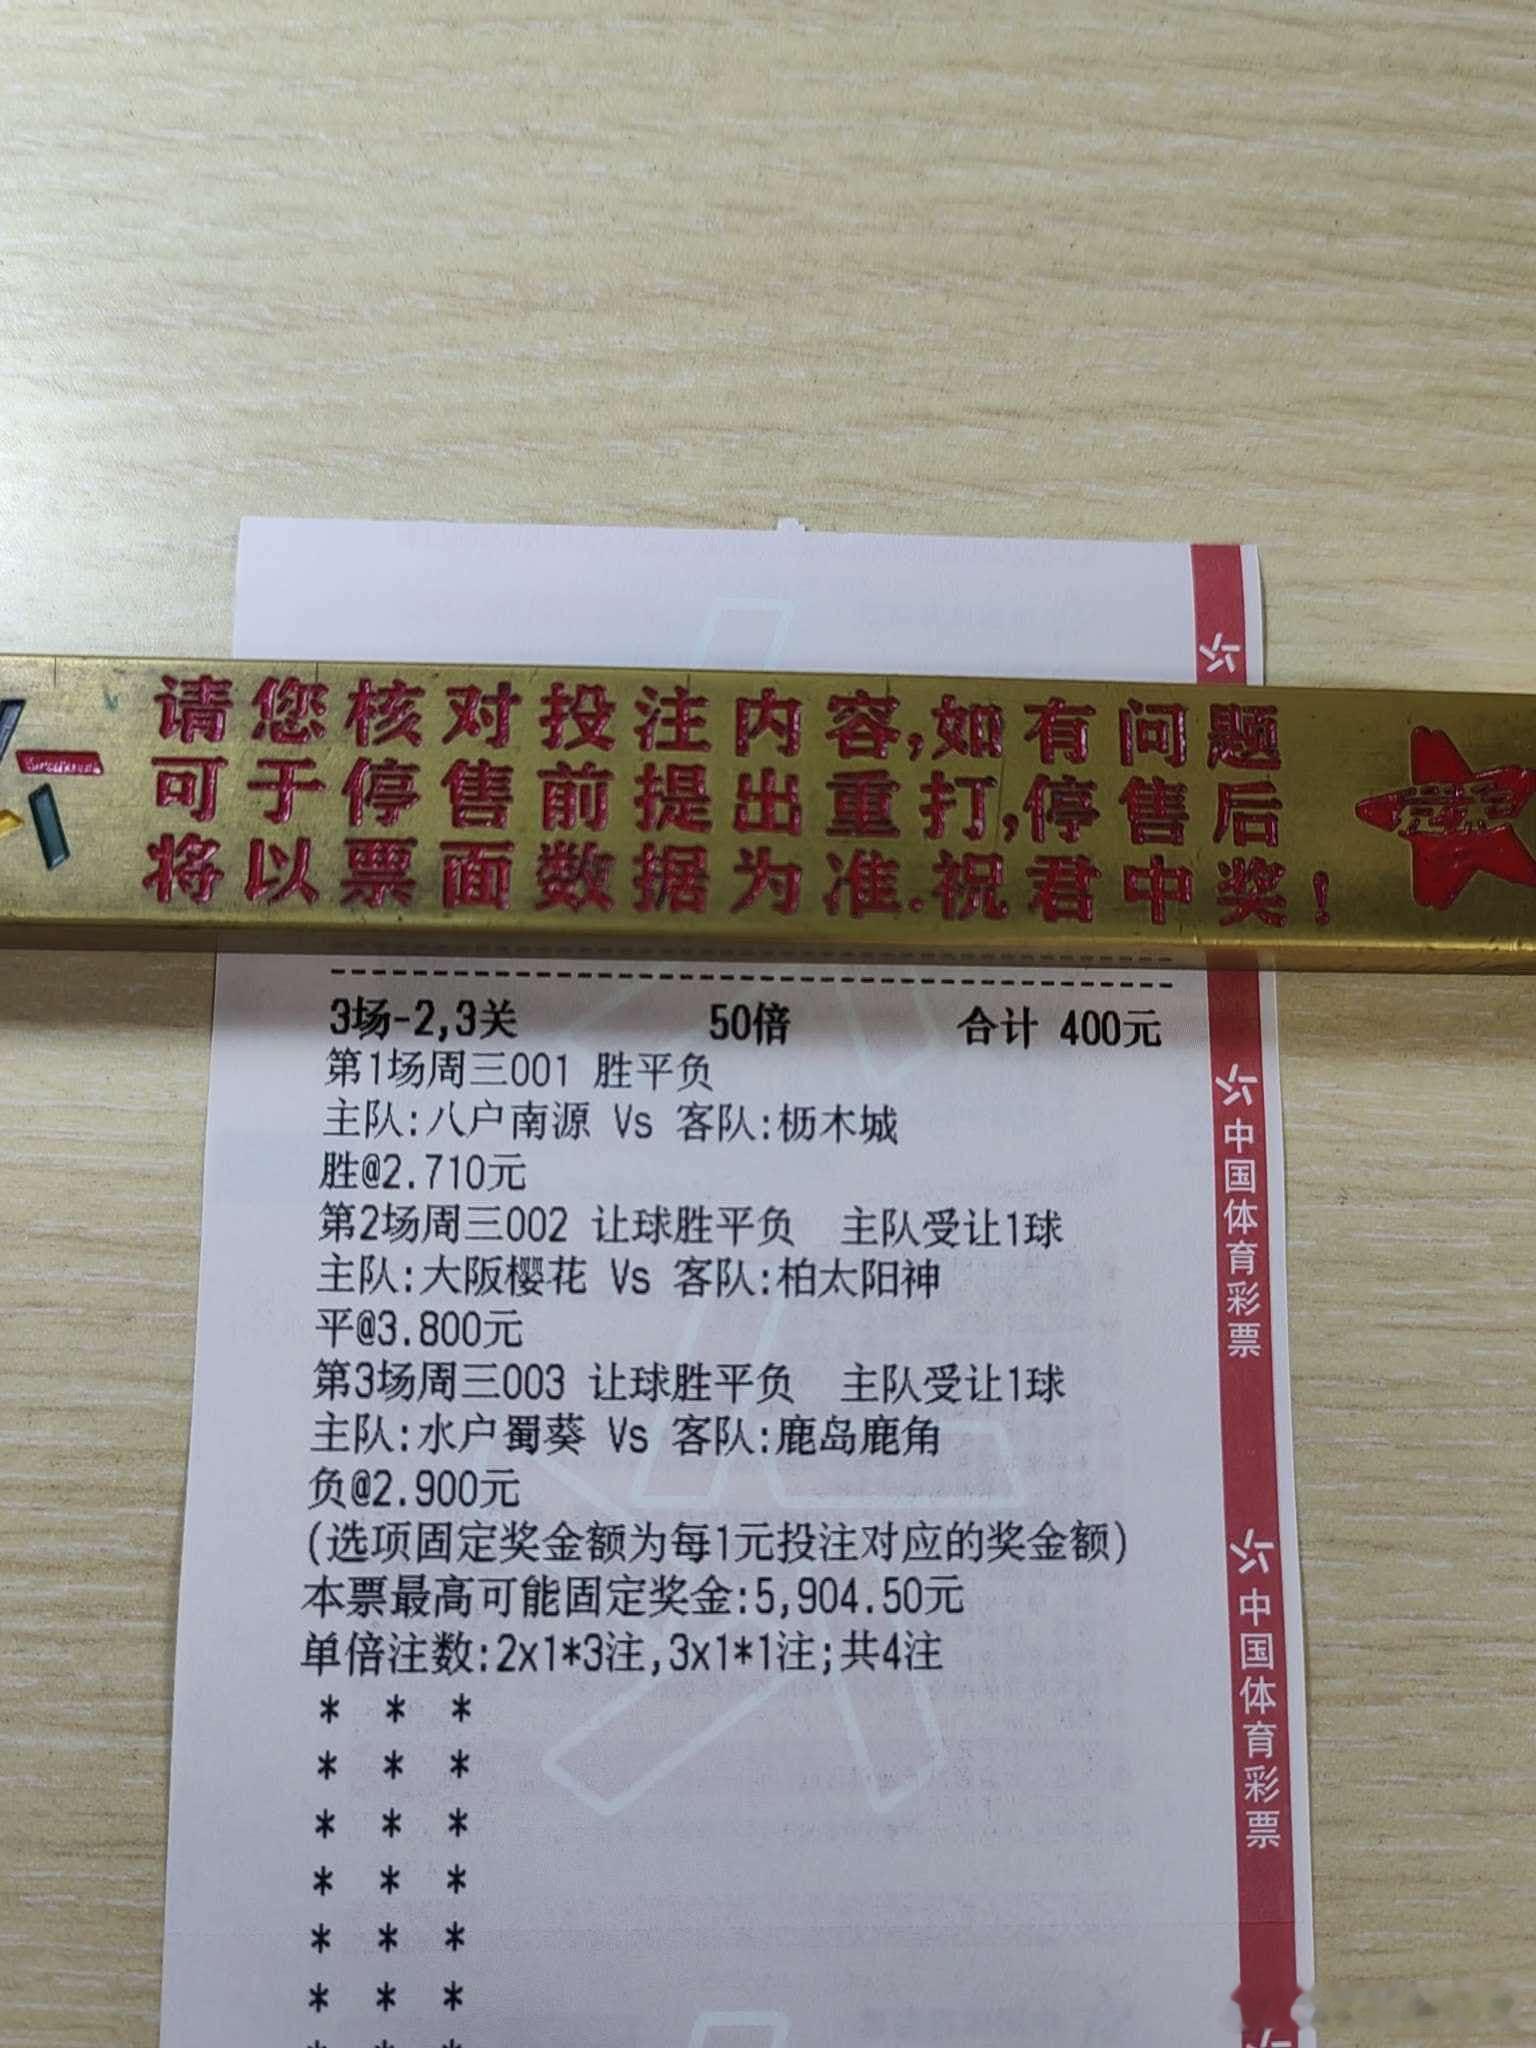 请您核对投注内容,如有问题
可于停售前提出重打,停售后
将以票面数据为准.祝君中奖!
3场-2,3关 50倍 合计 400元
第1场周三001 胜平负
主队:八户南源 Vs 客队:枥木城
胜@2.710元
第2场周三002 让球胜平负 主队受让1球
主队:大阪樱花 Vs 客队:柏太阳神
平@3.800元
第3场周三003 让球胜平负 主队受让1球
主队:水户蜀葵 Vs 客队:鹿岛鹿角
负@2.900元
(选项固定奖金额为每1元投注对应的奖金额)
本票最高可能固定奖金:5,904.50元
单倍注数:2x1*3注,3x1*1注;共4注
* * *
* * *
* * *
* * *
* * *
* * *
中国体育彩票
中国体育彩票